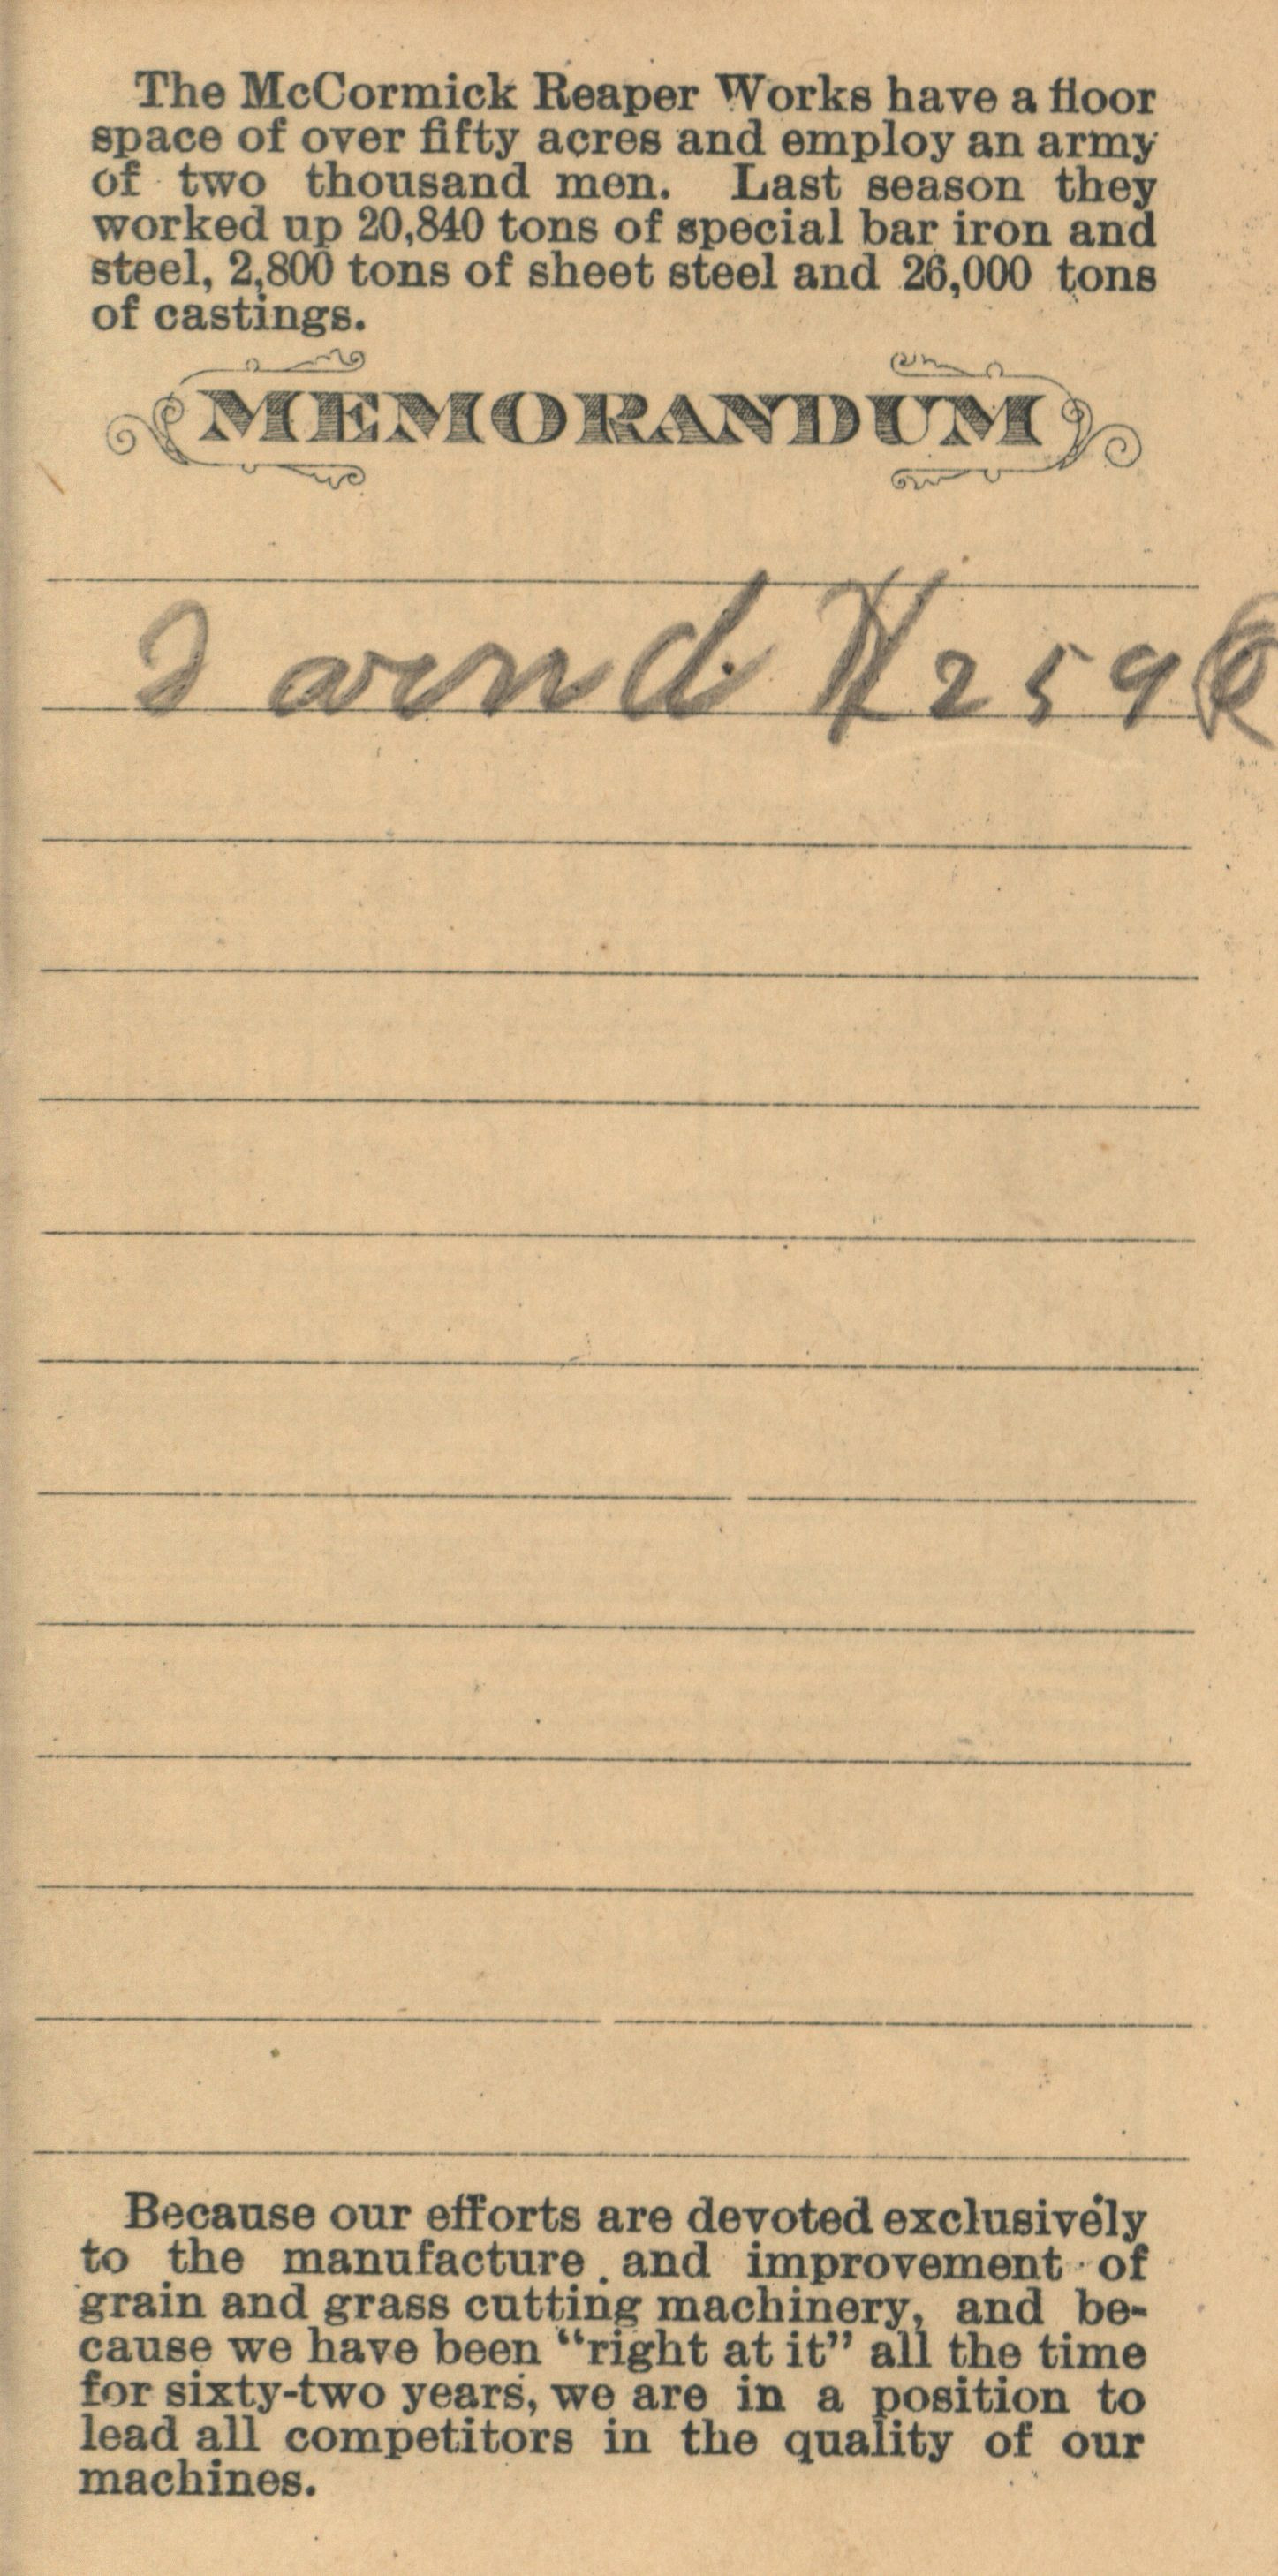 The McCormick Reaper Works have a floor
space of over fifty acres and employ an army
of two thousand men. Last season they
worked up 20,840 tons of special bar iron and
steel, 2,800 tons of sheet steel and 26,000 tons
of castings.
MEMORANDUM
259
Because our efforts are devoted exclusively
to the manufacture and improvement of
grain and grass cutting machinery, and be-
cause we have been “right at it” all the time
for sixty-two years, we are in a position to
lead all competitors in the quality of our
machines.